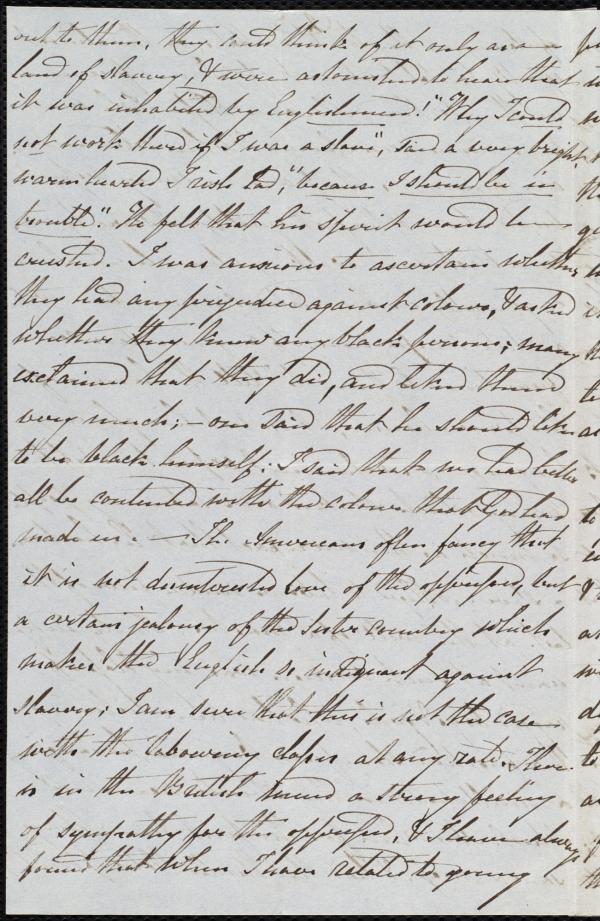 out to them, they could think of it only as a
land of slavery, & were astonished to hear that
it was inhabited by Englishmen! "Why I could
not work there if I was a slave", said a very bright,
warm hearted Irish lad, "because I should be in
trouble". He felt that his spirit would be
crushed. I was anxious to ascertain whether
they had any prejudice against colour, & asked
whether they knew any black persons; many
exclaimed that they did, and liked them
very much; – one said that he should like
to be black himself. I said that we had better
all be contented with the colour that God had
made us. — The Americans often fancy that
it is not disinterested love of the oppressed, but
a certain jealousy of the sister country which
makes the English so indignant against
slavery; I am sure that this is not the case
with the labouring classes at any rate. There
is in the British mind a strong feeling
of sympathy for the oppressed, & I have always
found that when I have related to young